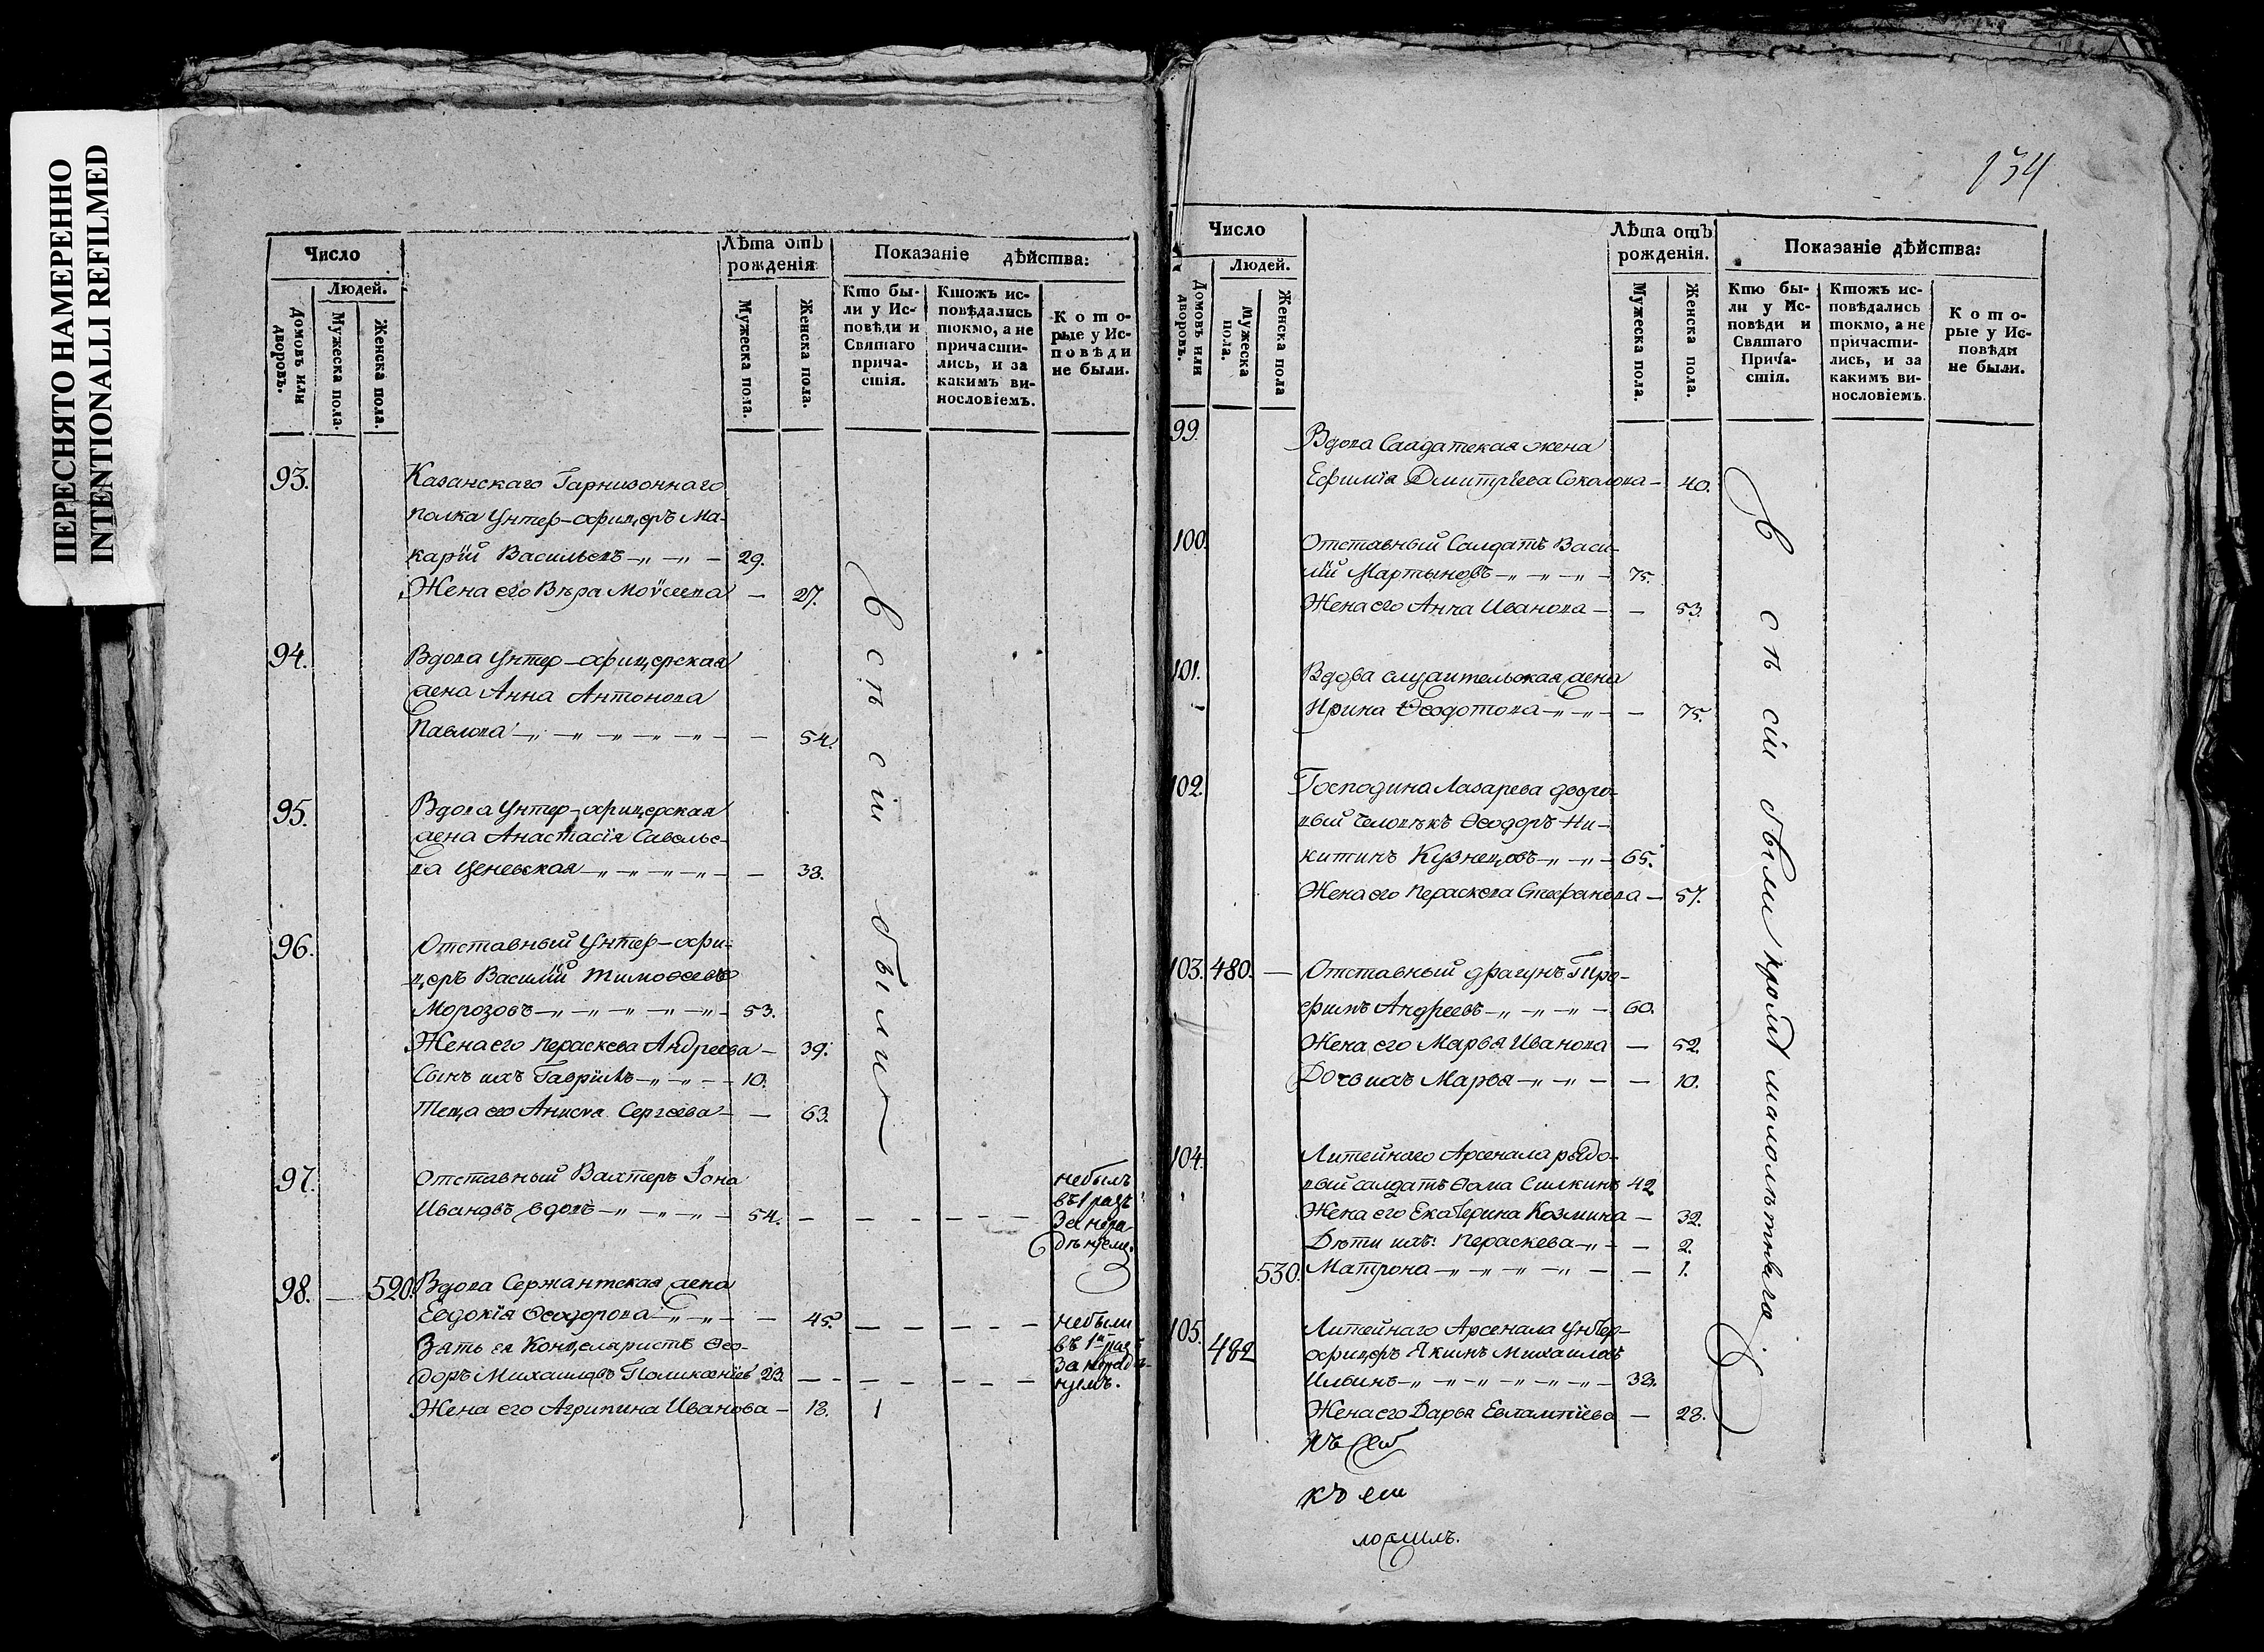 ПЕРЕСНЯТО НАМЕРЕННО
INTENTIONALLI REFILMED
Число
Людей.
Домовъ или дворовъ.
Мужеска пола.
Женска пола.
Лѣта отъ
рожденія
Мужеска пола.
Женска пола.
Показаніе дѣйства:
Кто бы-
ли у Ис-
повѣди и
Святаго
прича-
стія.
Ктожъ ис-
повѣдались
токмо, а не
причасти-
лись, и за
какимъ ви-
нословіемъ.
Кото-
рые у Ис-
повѣди
не были.
93. Казанскаго Гарнизоннаго
полка Унтер-офицеръ Ма-
карій Васильевъ 29.
Жена его Вѣра Моѵсеева — 27.
94. Вдова Унтер-офицерская
жена Анна Антонова
Павлова — 54.
95. Вдова Унтер-офицерская
жена Анастасія Савелье-
ва — 33.
96. Отставный Унтер-офи-
церъ Василій Тимоѳеевъ
Морозовъ 53.
Жена его Параскева Андреева — 39.
Сынъ ихъ Гавріилъ 10.
Теща его Сергеева — 63.
всѣ сіи были
97. Отставный Вахтеръ Іона
Ивановъ вдовъ 54.
небылъ
въ 1 разъ
за нера-
дѣніемъ.
98. — 520. Вдова Сержантская жена
Евдокія Ѳеодорова — 45.
небыли
въ 1й разъ
за нерадѣ-
ніемъ.
Зять ея Канцеляристъ Ѳео-
доръ Михаиловъ 23.
Жена его Агрипина Иванова — 18. 1
134.
Число
Людей.
Домовъ или дворовъ.
Мужеска пола.
Женска пола
Лѣта отъ
рожденія.
Мужеска пола.
Женска пола.
Показаніе дѣйства:
Кто бы-
ли у Ис-
повѣди и
Святаго
Прича-
стія.
Ктожъ ис-
повѣдались
токмо, а не
причасти-
лись, и за
какимъ ви-
нословіемъ.
Кото-
рые у Ис-
повѣди
не были.
99. Вдова Салдатская жена
Ефимія Дмитріева Соколова — 40.
100. Отставный Салдатъ Васи-
лій Мартыновъ 75.
Жена его Анна Иванова — 53.
101. Вдова служительская жена
Ирина Ѳеодотова — 75.
102. Господина Лазарева дворо-
вый человѣкъ Ѳеодоръ Ни-
китинъ Кузнецовъ 65.
Жена его Параскева Стефанова — 57.
103. 480. — Отставный драгунъ Тро-
фимъ Андреевъ 60.
Жена его Марья Иванова — 52.
Дочь ихъ Марья — 10.
104. Литейнаго Арсенала рядо-
вый салдатъ Ѳома Силкинъ 42
Жена его Екатерина Козмина — 32.
Дѣти ихъ: Параскева — 2.
530. Матрона — 1.
105. Литейнаго Арсенала Унтер-
482 офицеръ Якимъ Михаиловъ
Ильинъ 33.
Жена его Дарья Евлампіева — 28.
всѣ сіи были кромѣ малолѣтныхъ